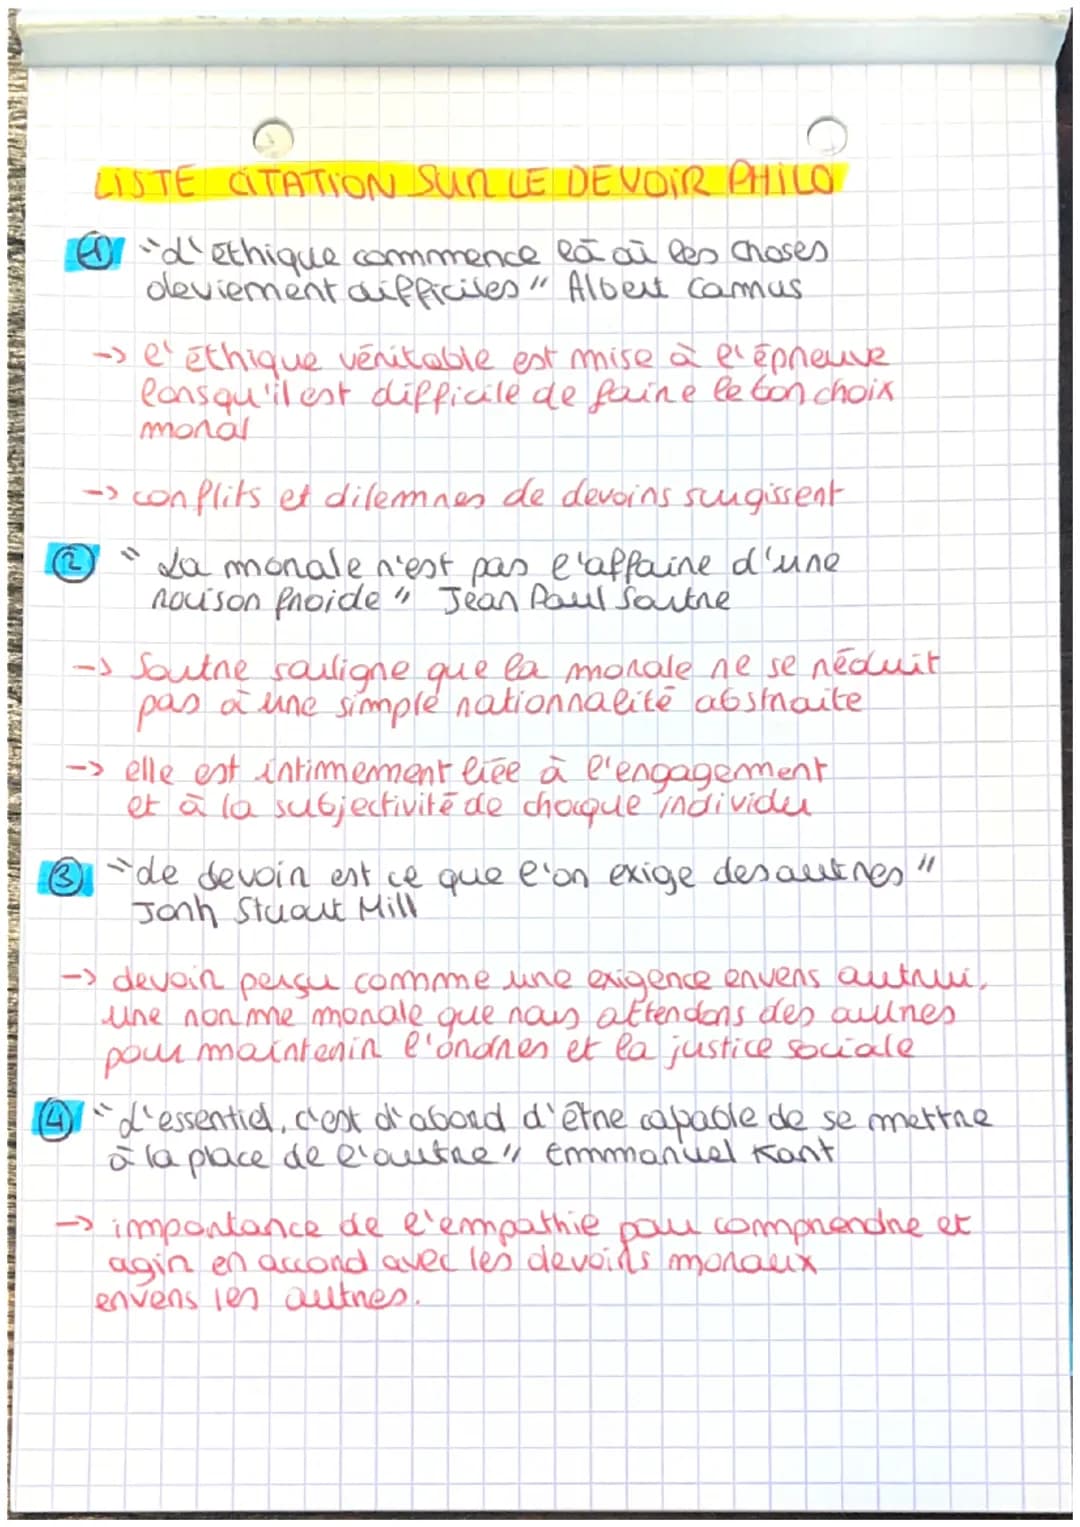 LISTE CITATION SUR LE DEVOIR PHILO
① "L'éthique commence là où les choses
deviennent difficiles" Albert Camus
-> l'éthique véritable est mise à l'épreuve
lorsqu'il est difficile de faire le bon choix
moral
-> conflits et dilemnes de devoirs surgissent
② "La morale n'est pas l'affaire d'une
raison froide" Jean Paul Sartre
-> Sartre souligne que la morale ne se réduit
pas à une simple rationnalité abstraite
-> elle est intimement liée à l'engagement
et à la subjectivité de chaque individu
③ "Le devoir est ce que l'on exige des autres"
Jonh Stuart Mill
-> devoir perçu comme une exigence envers autrui,
une norme morale que nous attendons des autres
pour maintenir l'ordres et la justice sociale
④ "L'essentiel, c'est d'abord d'être capable de se mettre
à la place de l'autre" Emmanuel Kant
-> importance de l'empathie pour comprendre et
agir en accord avec les devoirs moraux
envers les autres.